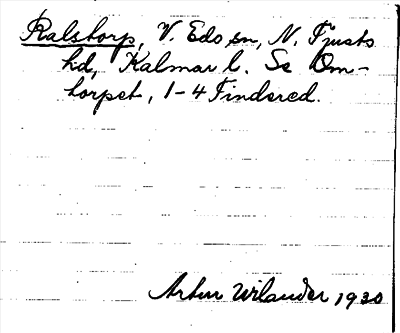 Ralstorp, V. Eds sn, N. Tjusts
hd, Kalmar l. Se Om-
torpet, 1-4 Tindered.
Artur Wilander 1930